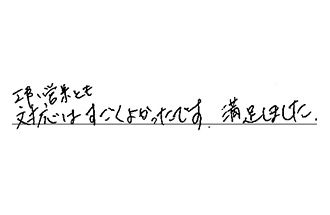 工事、営業とも
対応はすごくよかったです。満足しました。